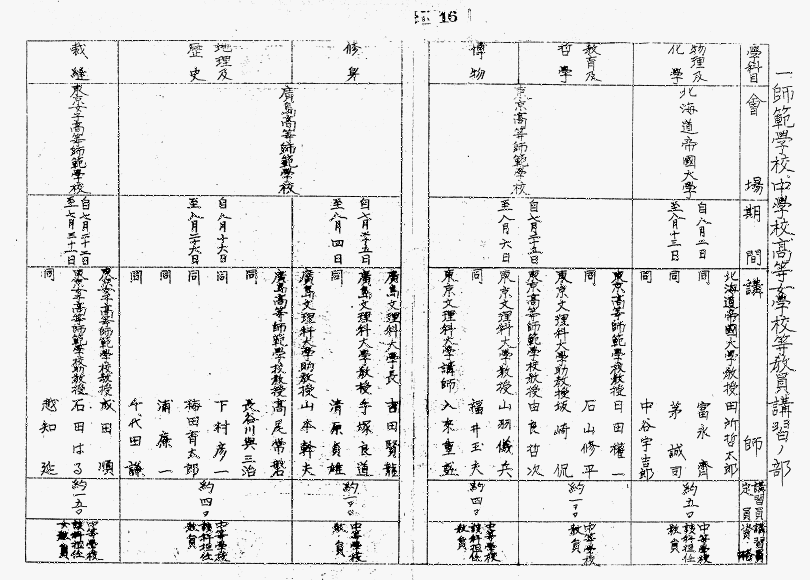 16
一師範學校中學校高等女學校等教員講習ノ部
學科目
會場
期間
講師
講習員定員
講習員資格
物理及化學
北海道帝國大學
自八月二日
至八月十三日
北海道帝國大學教授 田所哲太郎
同 富永齊
同 茅誠司
同 中谷宇吉郎
約五〇
中等學校該科担任教員
教育及哲學
東京高等師範學校
自七月二十五日
至八月六日
東京高等師範學校教授 日田權一
同 石山修平
東京文理科大學助教授 坂崎侃
東京高等師範學校教授 由良哲次
約一〇〇
中等學校教員
博物
東京文理科大學教授 山羽儀兵
同 福井玉夫
東京文理科大學講師 入來重盛
約四〇
中等學校該科担任教員
修身
廣島高等師範學校
自七月二十五日
至八月四日
廣島文理科大學長 吉田賢龍
廣島文理科大學教授 手塚良道
同 清原貞雄
廣島文理科大學助教授 山本幹夫
約一〇〇
中等學校教員
地理及歷史
自八月十六日
至八月二十六日
廣島高等師範學校教授 高尾常磐
同 長谷川與三治
同 下村彦一
同 梅田斉太郎
同 浦廉一
同 千代田謙
約四〇
中等學校該科担任教員
裁縫
東京女子高等師範學校
自七月二十二日
至七月三十一日
東京女子高等師範學校教授 成田順
東京女子高等師範學校助教授 石田はる
同 越知延
約一五〇
中等學校該科担任女教員